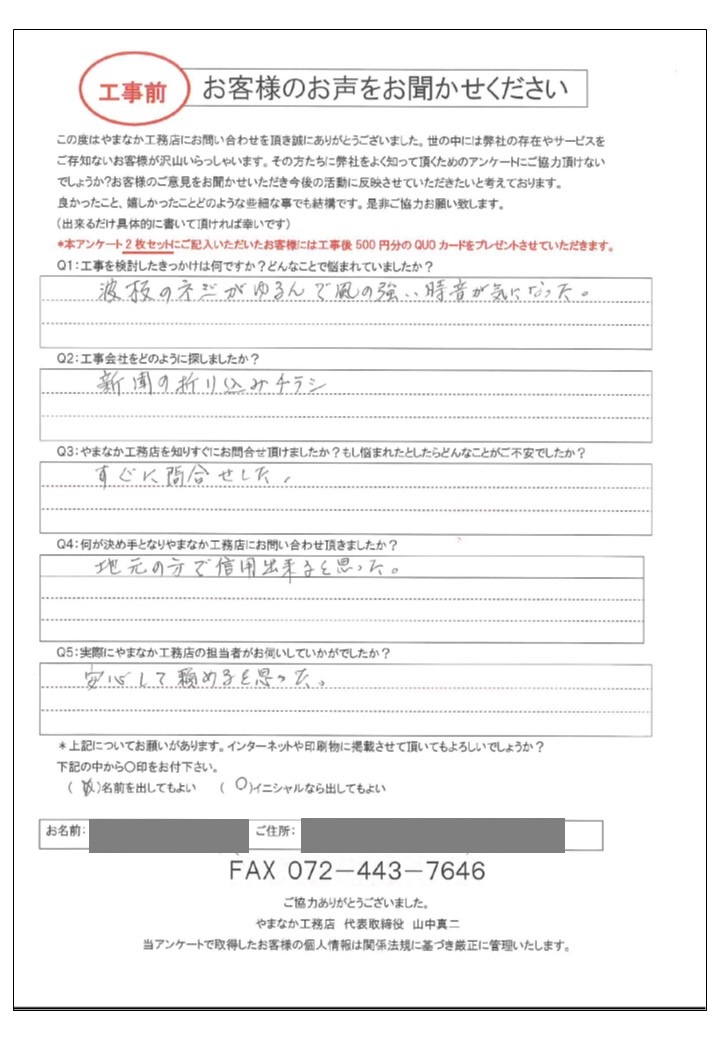 工事前
お客様のお声をお聞かせください
この度はやまなか工務店にお問い合わせを頂き誠にありがとうございました。世の中には弊社の存在やサービスを
ご存知ないお客様が沢山いらっしゃいます。その方たちに弊社をよく知って頂くためのアンケートにご協力頂けない
でしょうか?お客様のご意見をお聞かせいただき今後の活動に反映させていただきたいと考えております。
良かったこと、嬉しかったことどのような些細な事でも結構です。是非ご協力お願い致します。
(出来るだけ具体的に書いて頂ければ幸いです)
*本アンケート2枚セットにご記入いただいたお客様には工事後500円分のQUOカードをプレゼントさせていただきます。
Q1:工事を検討したきっかけは何ですか?どんなことで悩まれていましたか?
波板のネジがゆるんで風の強い時音が気になった。
Q2:工事会社をどのように探しましたか?
新聞の折り込みチラシ
Q3:やまなか工務店を知りすぐにお問合せ頂けましたか?もし悩まれたとしたらどんなことがご不安でしたか?
すぐに問合せした。
Q4:何が決め手となりやまなか工務店にお問い合わせ頂きましたか?
地元の方で信用出来ると思った。
Q5:実際にやまなか工務店の担当者がお伺いしていかがでしたか?
安心して頼めると思った。
*上記についてお願いがあります。インターネットや印刷物に掲載させて頂いてもよろしいでしょうか?
下記の中から○印をお付下さい。
( )名前を出してもよい ( ○ )イニシャルなら出してもよい
お名前: ご住所:
FAX 072-443-7646
ご協力ありがとうございました。
やまなか工務店 代表取締役 山中真二
当アンケートで取得したお客様の個人情報は関係法規に基づき厳正に管理いたします。